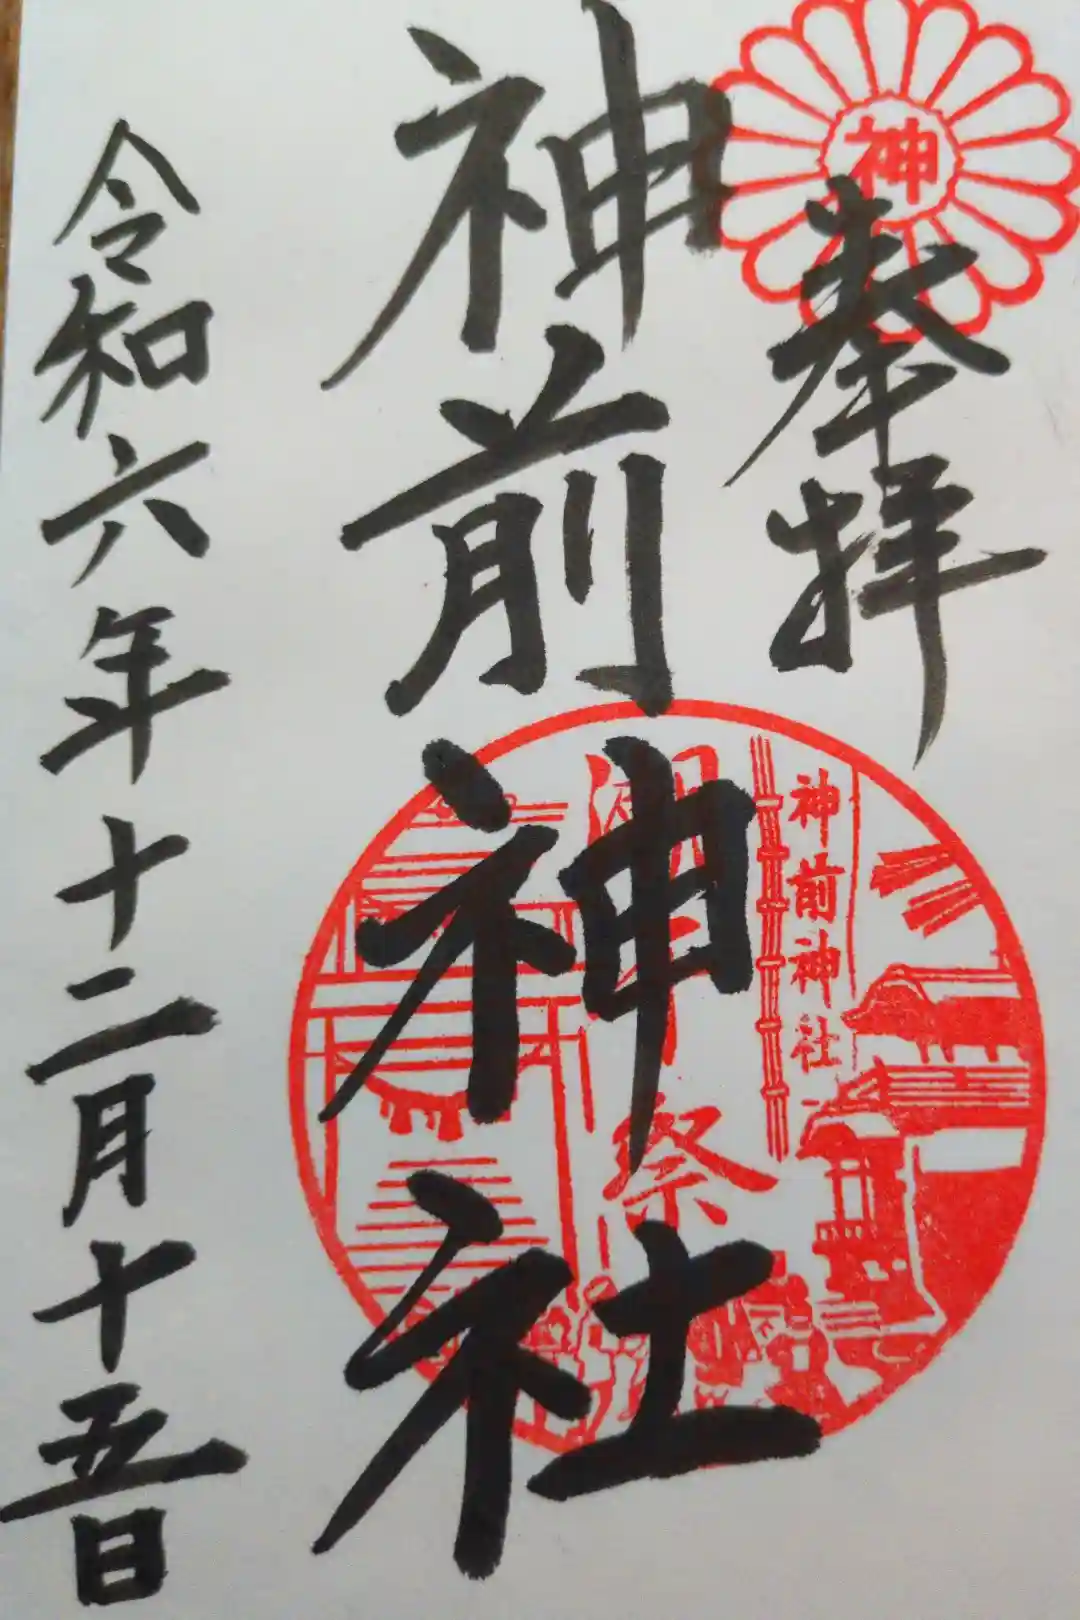 神
奉拝
神前神社
神前神社
祭
令和六年十二月十五日